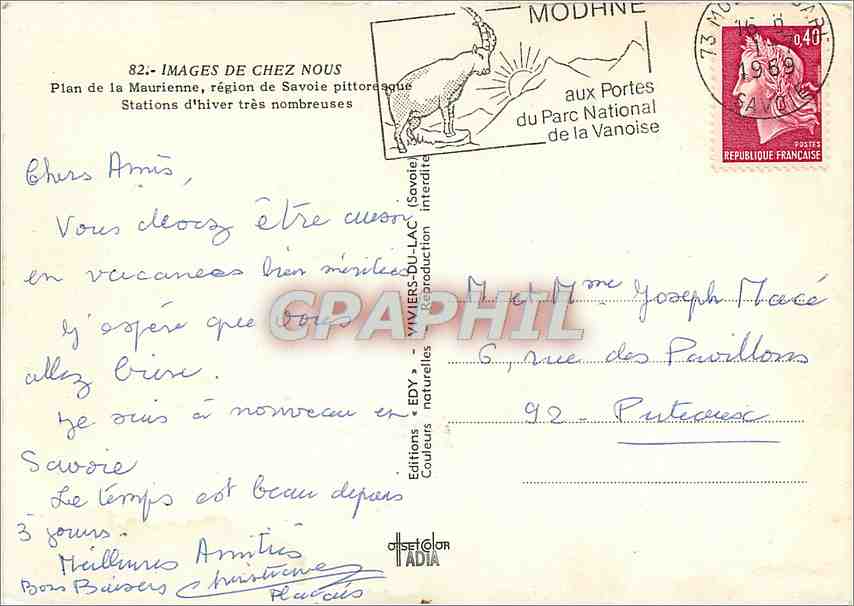 82.- IMAGES DE CHEZ NOUS
Plan de la Maurienne, région de Savoie pittoresque
Stations d'hiver très nombreuses
MODANE
aux Portes
du Parc National
de la Vanoise
16 H
1969
SAVOIE
0,40
POSTES
REPUBLIQUE FRANÇAISE
Chers Amis,
Vous devez être aussi
en vacances bien méritées
J'espère que vous
allez bien.
Je suis à nouveau en
Savoie
Le temps est beau depuis
3 jours.
Meilleures Amitiés
Bons Baisers
Editions « EDY » - VIVIERS-DU-LAC (Savoie)
Couleurs naturelles - Reproduction interdite
OFFSETCOLOR
IADIA
M et Mme Joseph Macé
6, rue des Pavillons
92 - Puteaux
GPAPHIL